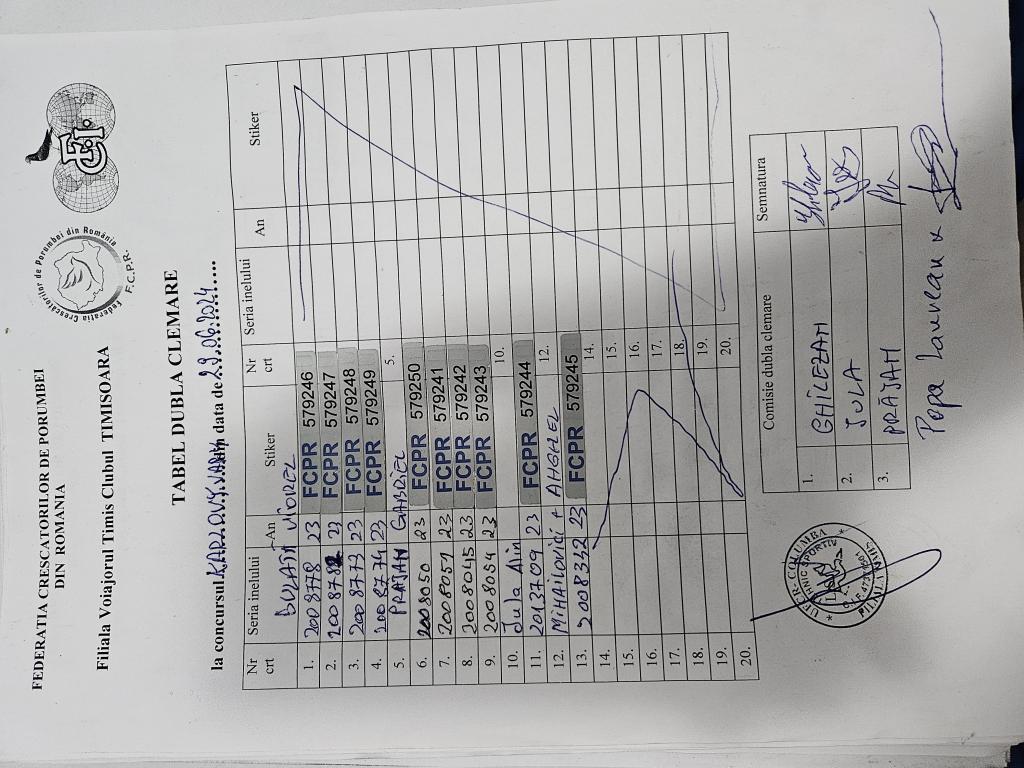 FEDERATIA CRESCATORILOR DE PORUMBEI
DIN ROMANIA
Filiala Voiajorul Timis Clubul TIMISOARA
Federatia Crescatorilor de Porumbei din România
F.C.P.R.
TABEL DUBLA CLEMARE
la concursul KARLOVY VARY din data de 29.06.2024
Nr crt Seria inelului An Stiker Nr crt Seria inelului An Stiker
VIOREL
1. 2008778 23 FCPR 579246
2. FCPR 579247
3. 2008773 23 FCPR 579248
4. 2008774 23 FCPR 579249
5. PRAJAN GABRIEL 5.
6. 2008050 23 FCPR 579250
7. 2008057 23 FCPR 579241
8. 2008045 23 FCPR 579242
9. 2008094 23 FCPR 579243
10. Jula Alin 10.
11. 2013709 23 FCPR 579244
12. Mihailovici + ANGHEL 12.
13. 2008342 23 FCPR 579245
14. 14.
15. 15.
16. 16.
17. 17.
18. 18.
19. 19.
20. 20.
Comisie dubla clemare Semnatura
1. GHILEZAN
2. JULA
3. PRĂJAN
Popa Laurean
COLUMBA